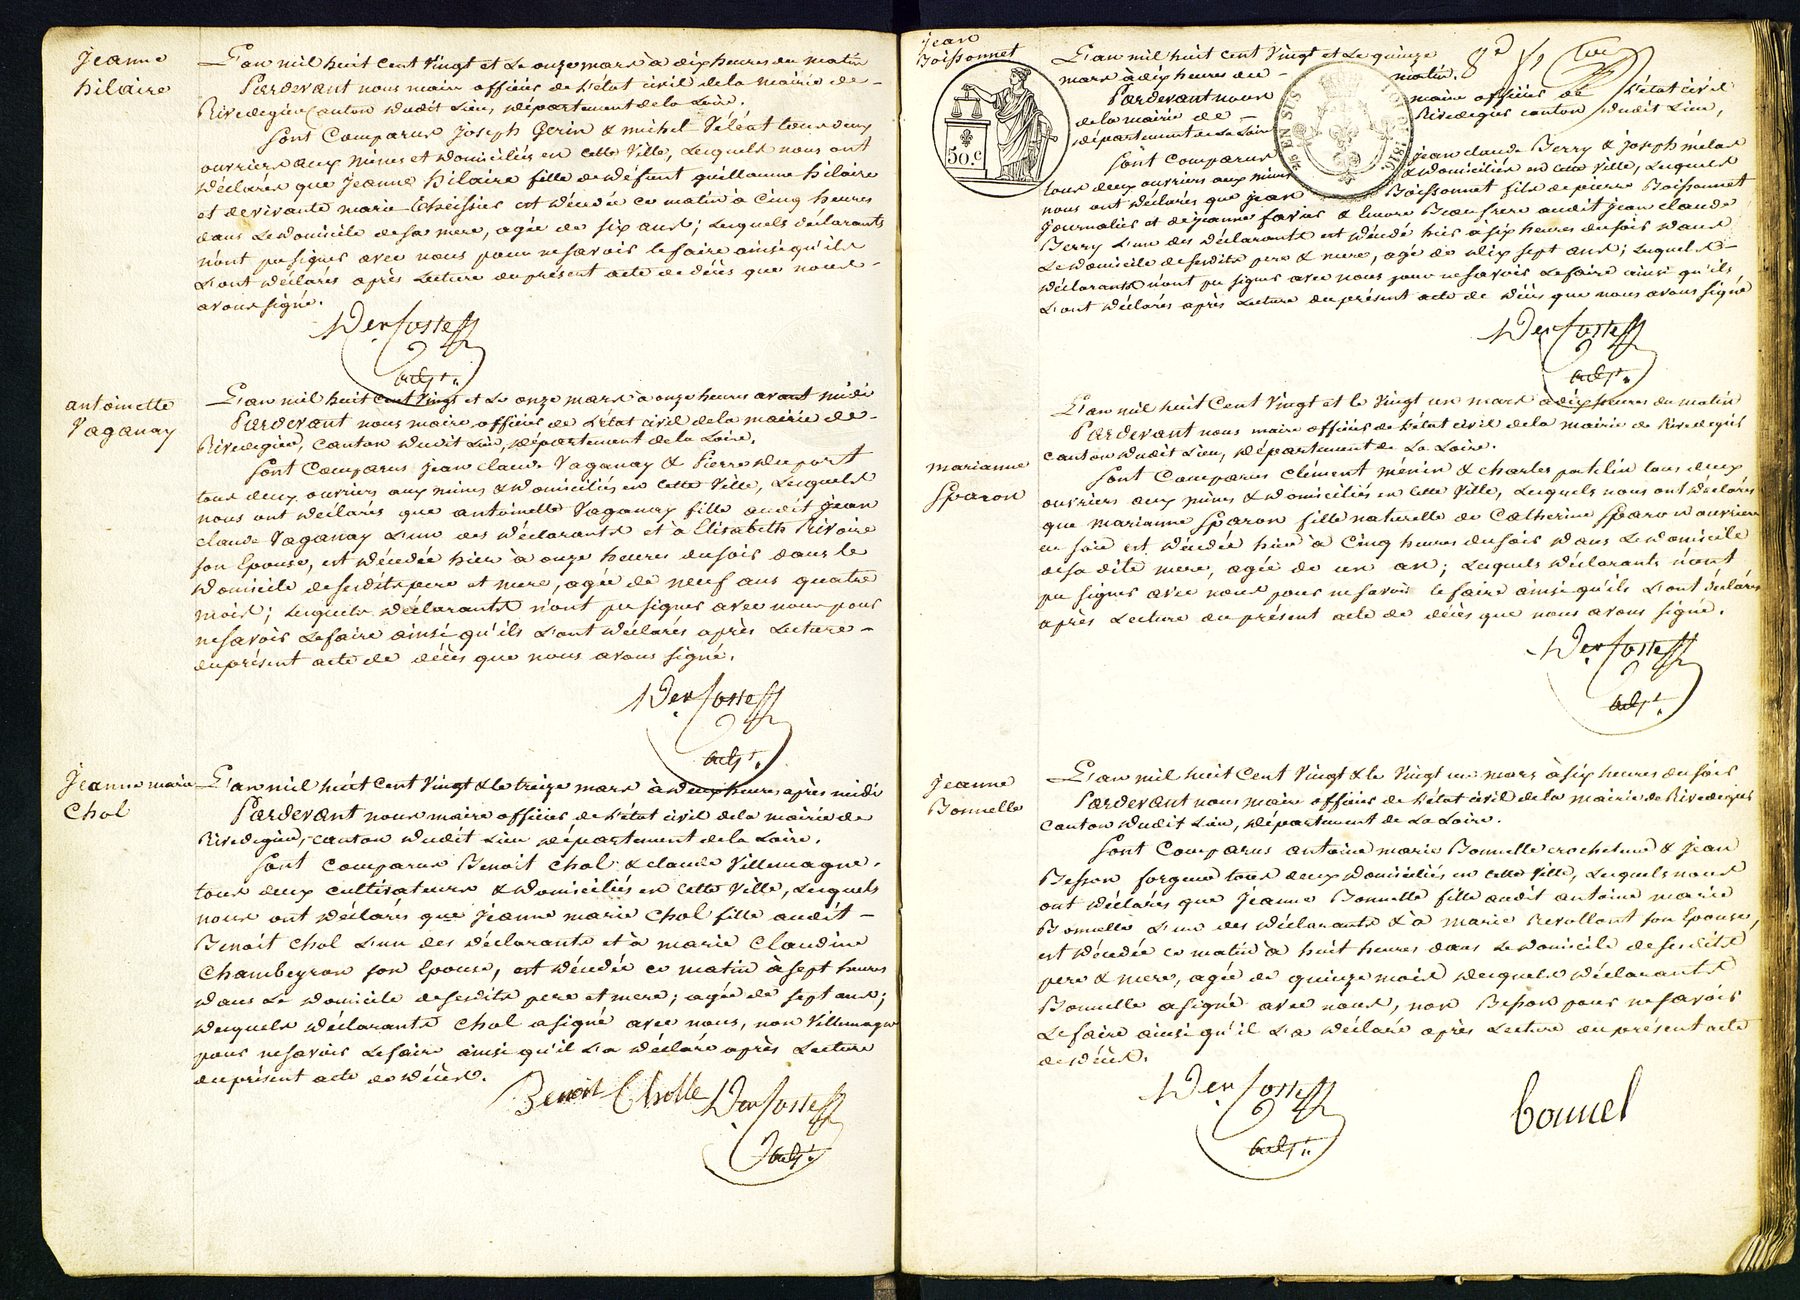 Jeanne
hilaire
L'an mil huit cent vingt et le onze mars à dix heures du matin
Pardevant nous maire officier de l'état civil de la mairie de
Rivedegier canton dudit Lieu, département de la Loire.
Sont Comparus Joseph Gerin & michel Véléat tous deux
ouvriers aux mines et domiciliés en cette Ville, Lesquels nous ont
déclarés que Jeanne hilaire fille de défunt guillaume hilaire
et de vivante marie teissier est décédée ce matin à Cinq heures
dans Le domicile de sa mere, agée de six ans; Lesquels déclarants
n'ont pu signer avec nous pour ne savoir le faire ainsi qu'ils
L'ont déclarés après Lecture du présent acte de décès que nous
avons signé.
adjt.
antoinette
Vaganay
L'an mil huit Cent Vingt et Le onze mars à onze heures avant midi
Pardevant nous maire officier de L'état civil de la mairie de
Rivedegier, Canton dudit Lieu, département de la Loire.
Sont Comparus jean claude Vaganay & Pierre duport
tous deux ouvriers aux mines & domiciliés en cette Ville, Lesquels
nous ont déclarés que antoinette Vaganay fille audit jean
claude Vaganay L'un des déclarants et à Elisabeth Rivoire
son Epouse, est décédée hier à onze heures du soir dans le
domicile de sesdits pere et mere, agée de neuf ans quatre
mois; Lesquels déclarants n'ont pu signer avec nous pour
ne savoir Le faire ainsi qu'ils L'ont déclarés après Lecture
du présent acte de décès que nous avons signé.
adjt.
Jeanne marie
Chol
L'an mil huit Cent Vingt & le treize mars à deux heures après midi
Pardevant nous maire officier de L'état civil de la mairie de
Rivedegier, canton dudit Lieu département de la Loire.
Sont Comparus Benoit Chol & claude Villemagne
tous deux cultivateurs & domiciliés en cette Ville, Lesquels
nous ont déclarés que Jeanne marie Chol fille audit
Benoit Chol L'un des déclarants et à marie Claudine
Chambeyron son Epouse, est décédée ce matin à sept heures
dans Le domicile de sesdits pere et mere; agée de sept ans;
desquels déclarants Chol a signé avec nous, non Villemagne
pour ne savoir Le faire ainsi qu'il L'a déclaré après Lecture
du présent acte de décès.
Benoit Cholle
adjt.
jean
Boissonnet
50.C
L'an mil huit Cent Vingt et Le quinze
mars à dix heures du matin. 8e
Pardevant nous maire officier de L'état civil
de la mairie de Rivedegier canton dudit Lieu,
département de La Loire
Sont Comparus jean claude Berry & joseph mélas
tous deux ouvriers aux mines & domiciliés en cette Ville, Lesquels
nous ont déclarés que jean Boissonnet fils de pierre Boissonnet
journalier et de jeanne favier & Encore Beaufrere audit jean claude
Berry L'un des déclarants est décédé hier à six heures du soir dans
Le domicile de sesdits pere & mere, agé de dix sept ans; Lesquels
déclarants n'ont pu signer avec nous pour ne savoir Le faire ainsi qu'ils
L'ont déclarés après Lecture du présent acte de décès que nous avons signé
adjt.
L'an mil huit Cent Vingt et le Vingt un mars à dix heures du matin
Pardevant nous maire officier de L'état civil de la mairie de Rivedegier
canton dudit Lieu, département de La Loire.
marianne
Sparon
Sont Comparus Clément ménin & charles patilin tous deux
ouvriers aux mines & domiciliés en Cette Ville, Lesquels nous ont déclarés
que marianne Sparon fille naturelle de Catherine Sparon ouvriere
en soie est décédée hier à Cinq heures du soir dans Le domicile
de sa dite mere, agée de un an; Lesquels déclarants n'ont
pu signer avec nous pour ne savoir le faire ainsi qu'ils L'ont déclarés
après Lecture du présent acte de décès que nous avons signé.
adjt.
Jeanne
Bonnelle
L'an mil huit Cent Vingt & le Vingt un mars à six heures du soir
Pardevant nous maire officier de L'état civil de la mairie de Rivedegier
canton dudit Lieu, département de La Loire.
Sont Comparus antoine marie Bonnelle crocheteur & jean
Besson forgeur tous deux domiciliés en cette Ville, Lesquels nous
ont déclarés que Jeanne Bonnelle fille audit antoine marie
Bonnelle L'un des déclarants & à marie Revollant son Epouse,
est décédée ce matin à huit heures dans Le domicile de sesdits
pere & mere, agée de quinze mois desquels déclarants
Bonnelle a signé avec nous, non Besson pour ne savoir
Le faire ainsi qu'il L'a déclaré après Lecture du présent acte
de décès.
adjt.
bonnel